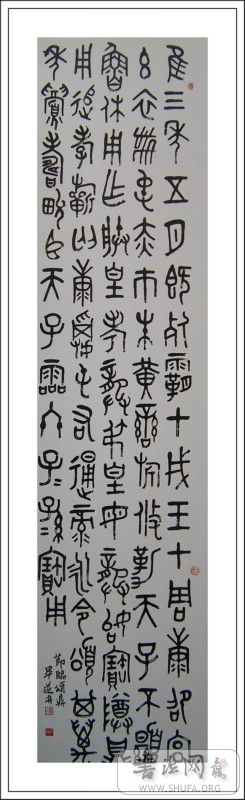 隹三年五月既死霸甲戌王才周康卲宮
玄衣黹屯赤巿朱黃䜌旂攸勒天子不顯
魯休用乍朕皇考龏弔皇母龏姒寶尊鼎
用追孝祈匄康䰩屯右通彔永令頌其萬
年眉壽畯臣天子霝冬子=孫=寶用
節臨頌鼎
書法网
WWW.SHUFA.ORG